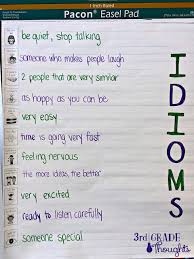 1 Inch Ruled
Pacon® Easel Pad
be quiet, stop talking
someone who makes people laugh
2 people that are very similar
as happy as you can be
very easy
time is going very fast
feeling nervous
the more ideas, the better
very excited
ready to listen carefully
someone special
IDIOMS
3rd GRADE
Thoughts